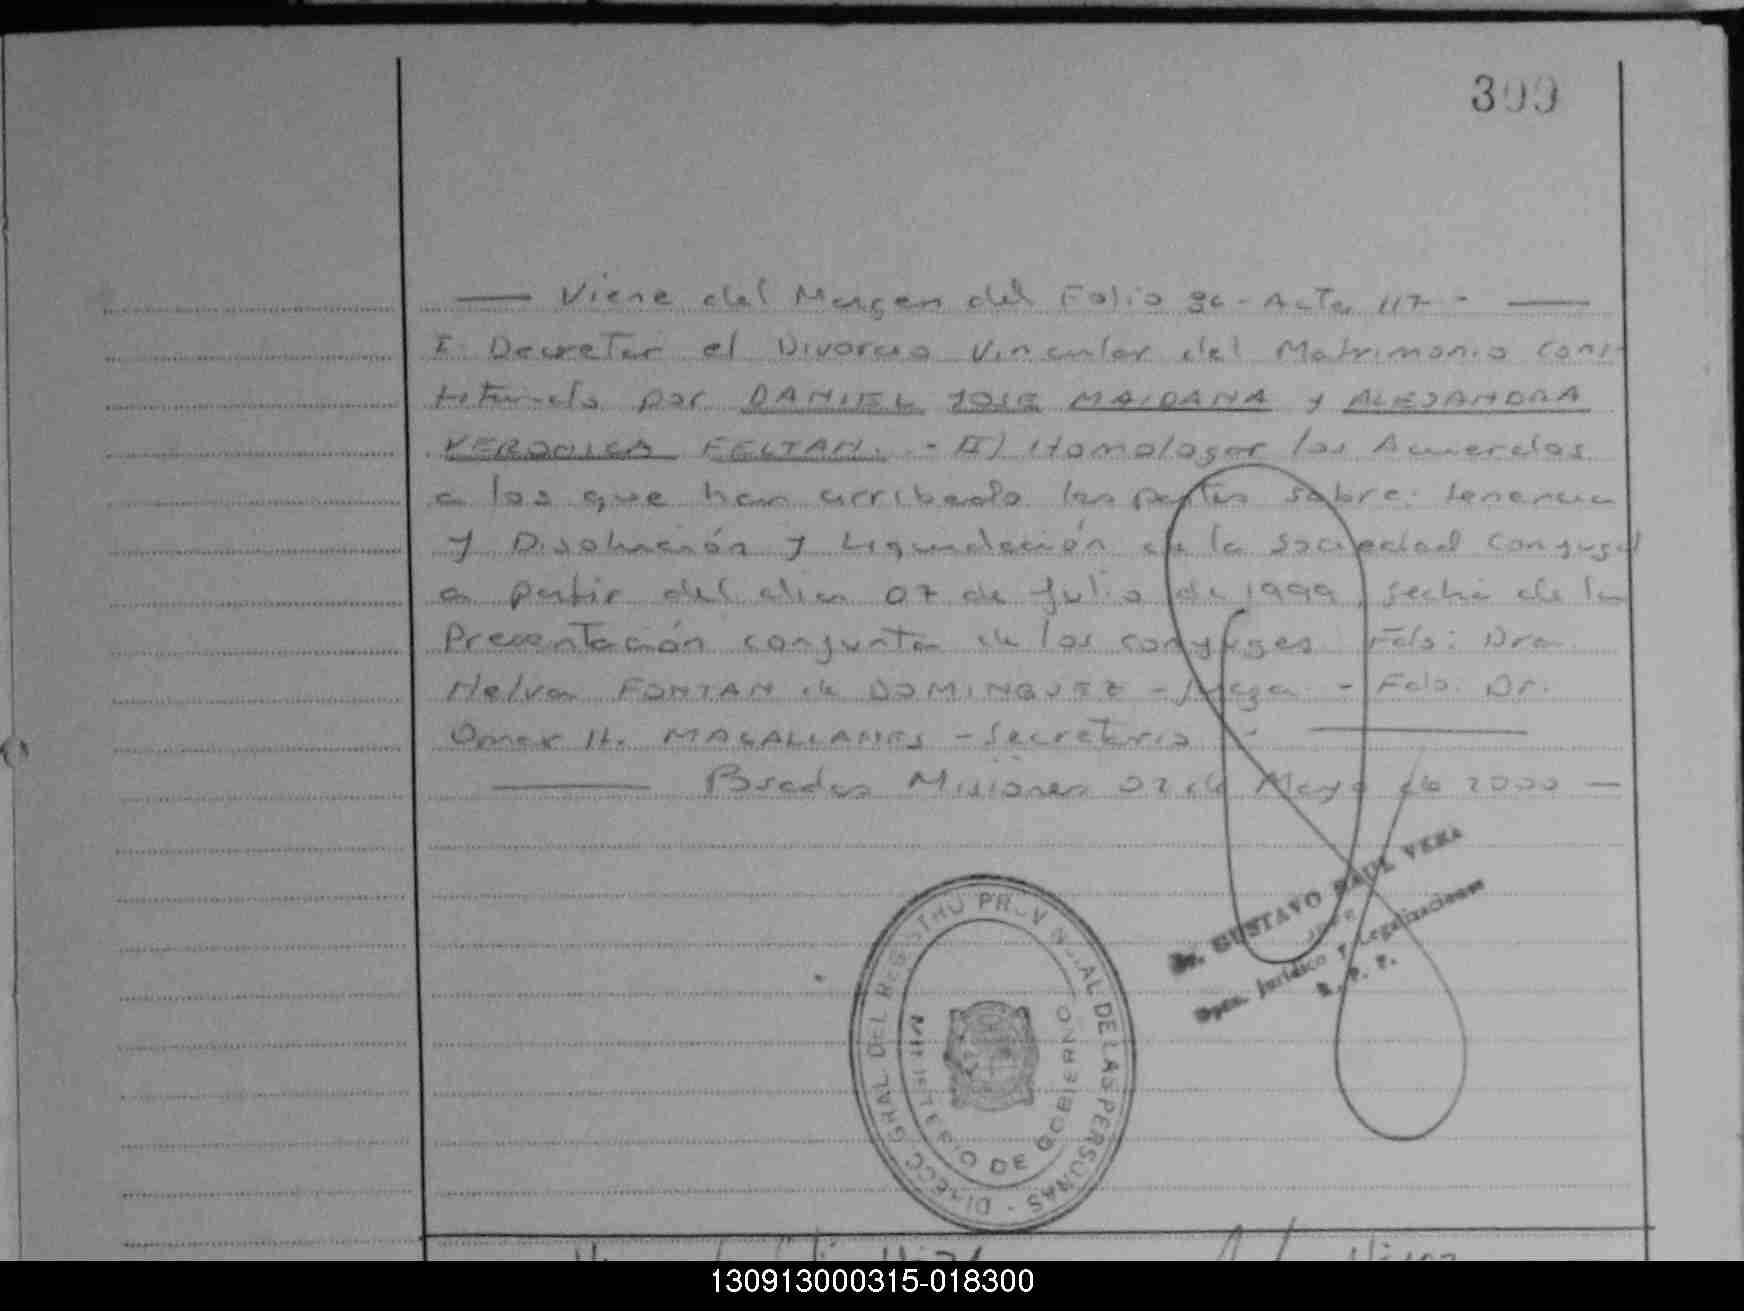 300
— Viene del Margen del Folio 96 - Acta 117 - —
I Decretar el Divorcio Vincular del Matrimonio cons-
tituido por DANIEL JOSE MAIDANA y ALEJANDRA
VERONICA FELTAN. - II) Homologar los Acuerdos
a los que han arribado las partes sobre: tenencia
y Disolución y Liquidación de la Sociedad Conyugal
a partir del dia 07 de Julio de 1999, fecha de la
Presentación conjunta de los conyuges. Fdo: Dra.
Melva FONTAN de DOMINGUEZ - Jueza. - Fdo. Dr.
Omar H. MAGALLANES - Secretario -
— Posadas Misiones 02 de Mayo de 2000 —
Dr. GUSTAVO RAUL VERA
Dpto. Jurídico y Legalizaciones
R. P. P.
DIRECC. GRAL. DEL REGISTRO PROVINCIAL DE LAS PERSONAS -
MINISTERIO DE GOBIERNO
130913000315-018300